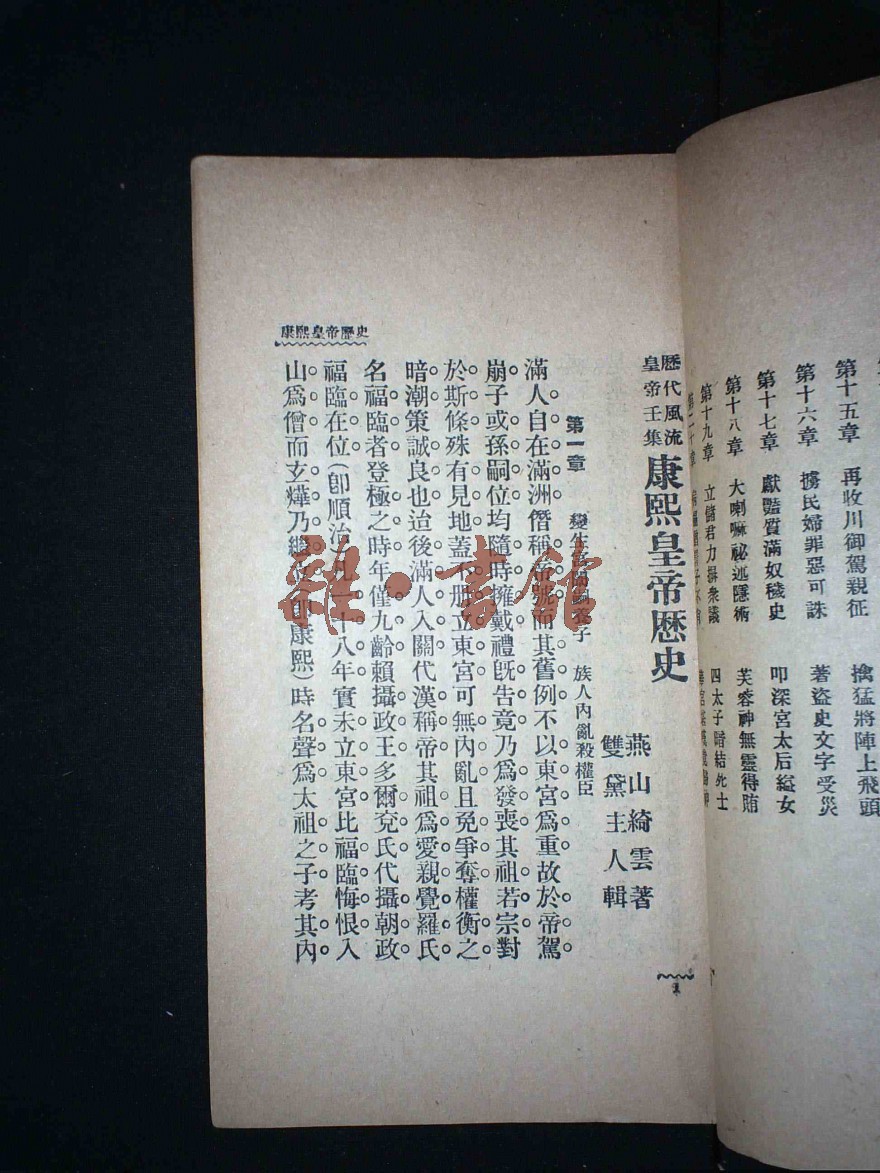 第十五章　再收川御駕親征　擒猛將陣上飛頭
第十六章　擄民婦罪惡可誅　著盜史文字受災
第十七章　獻豔質滿奴穢史　叩深宮太后縊女
第十八章　大喇嘛祕述隱術　芙蓉神無靈得賄
第十九章　立儲君力摒衆議　四太子暗結死士
歷代風流
皇帝壬集
康熙皇帝歷史
燕山綺雲著
雙黛主人輯
第一章　養子　族人內亂殺權臣
滿人自在滿洲僭稱帝號而其舊例不以東宮爲重故於帝駕
崩子或孫嗣位均隨時擁戴禮旣告竟乃爲發喪其祖若宗對
於斯條殊有見地蓋不册立東宮可無內亂且免爭奪權衡之
暗潮策誠良也迨後滿人入關代漢稱帝其祖爲愛親覺羅氏
名福臨者登極之時年僅九齡賴攝政王多爾兗氏代攝朝政
福臨在位(卽順治)凡一十八年實未立東宮比福臨悔恨入
山爲僧而玄燁乃繼位(卽康熙)時名聲爲太祖之子考其內
康熙皇帝歷史
雜·書館